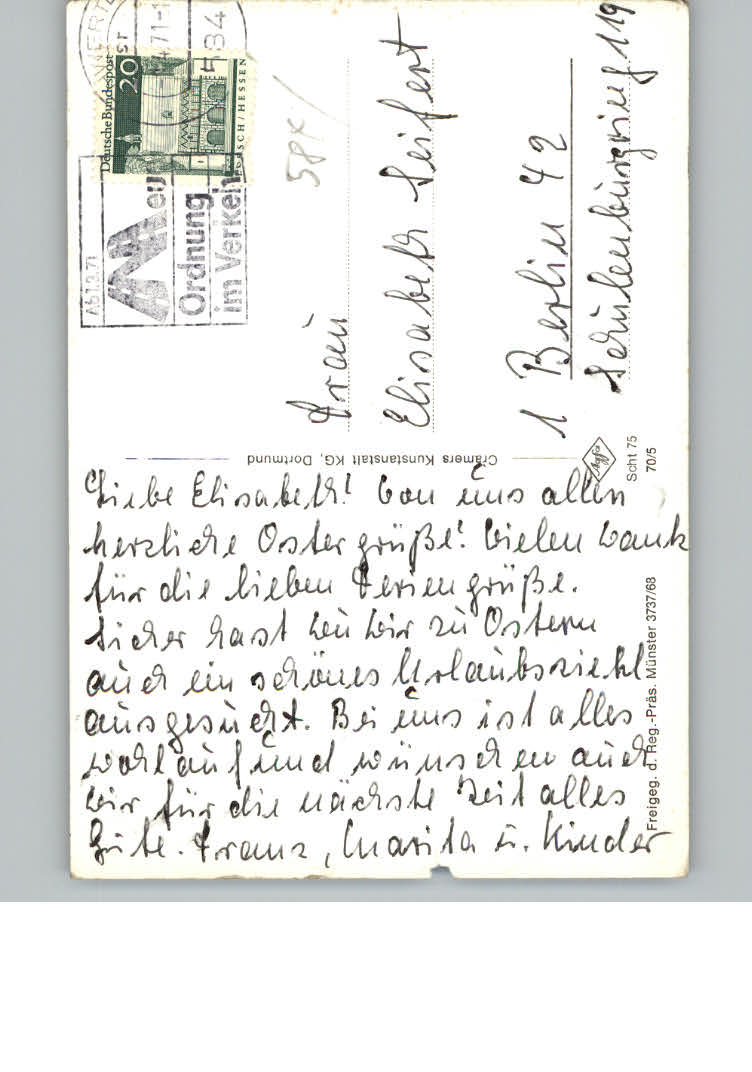 Liebe Elisabeth! Von uns allen
herzliche Ostergrüße! Vielen Dank
für die lieben Feriengrüße.
Sicher hast Du Dir zu Ostern
auch ein schönes Urlaubsziehl
ausgesucht. Bei uns ist alles
wohlauf und wünschen auch
Dir für die nächste Zeit alles
Gute. Franz, Marita u. Kinder
Frau
Elisabeth Seifert
1 Berlin 42
Schulenburgring 119
Deutsche Bundespost
20
LORSCH/HESSEN
71-1
Ab 1.3.71
Neue
Ordnung
im Verkehr
Cramers Kunstanstalt KG, Dortmund
Agfa
Scht 75
70/5
Freigeg. d. Reg.-Präs. Münster 3737/68